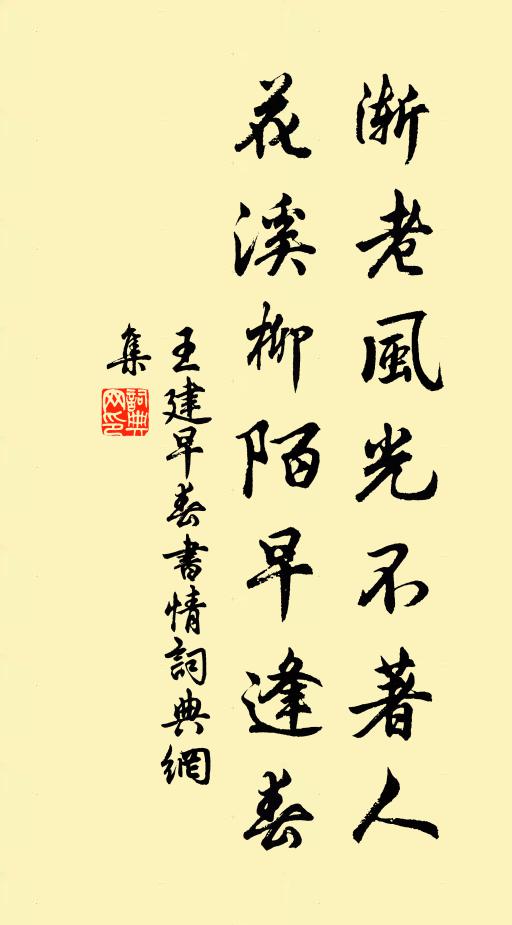 渐老風光不著人
花溪柳陌早逢春
王建早春書情詞典網
集
詞典
网印